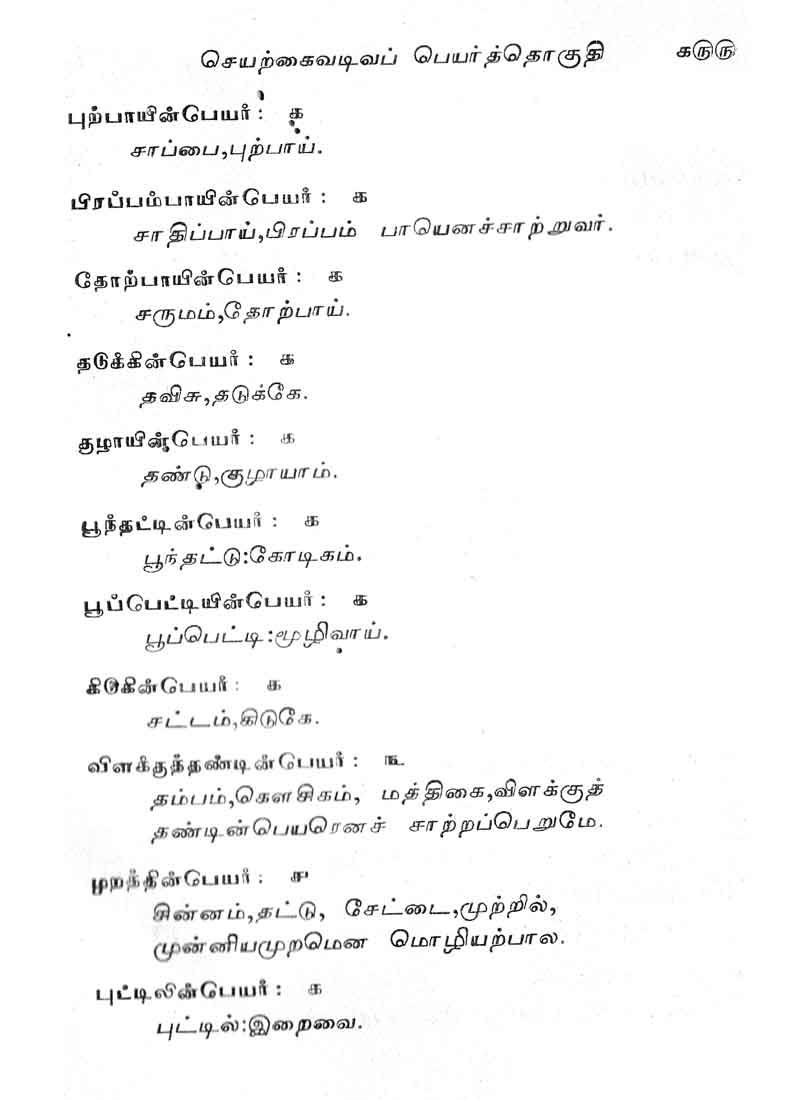 செயற்கைவடிவப் பெயர்த்தொகுதி க௫௫
புற்பாயின்பெயர் : க
சாப்பை,புற்பாய்.
பிரப்பம்பாயின்பெயர் : க
சாதிப்பாய்,பிரப்பம் பாயெனச்சாற்றுவர்.
தோற்பாயின்பெயர் : க
சருமம்,தோற்பாய்.
தடுக்கின்பெயர் : க
தவிசு,தடுக்கே.
குழாயின்பெயர் : க
தண்டு,குழாயாம்.
பூந்தட்டின்பெயர் : க
பூந்தட்டு:கோடிகம்.
பூப்பெட்டியின்பெயர் : க
பூப்பெட்டி:மூழிவாய்.
கிடுகின்பெயர் : க
சட்டம்,கிடுகே.
விளக்குத்தண்டின்பெயர் : ௩
தம்பம்,கௌசிகம், மத்திகை,விளக்குத்
தண்டின்பெயரெனச் சாற்றப்பெறுமே.
முறத்தின்பெயர் : ௪
சின்னம்,தட்டு, சேட்டை,முற்றில்,
முன்னியமுறமென மொழியற்பால.
புட்டிலின்பெயர் : க
புட்டில்:இறைவை.